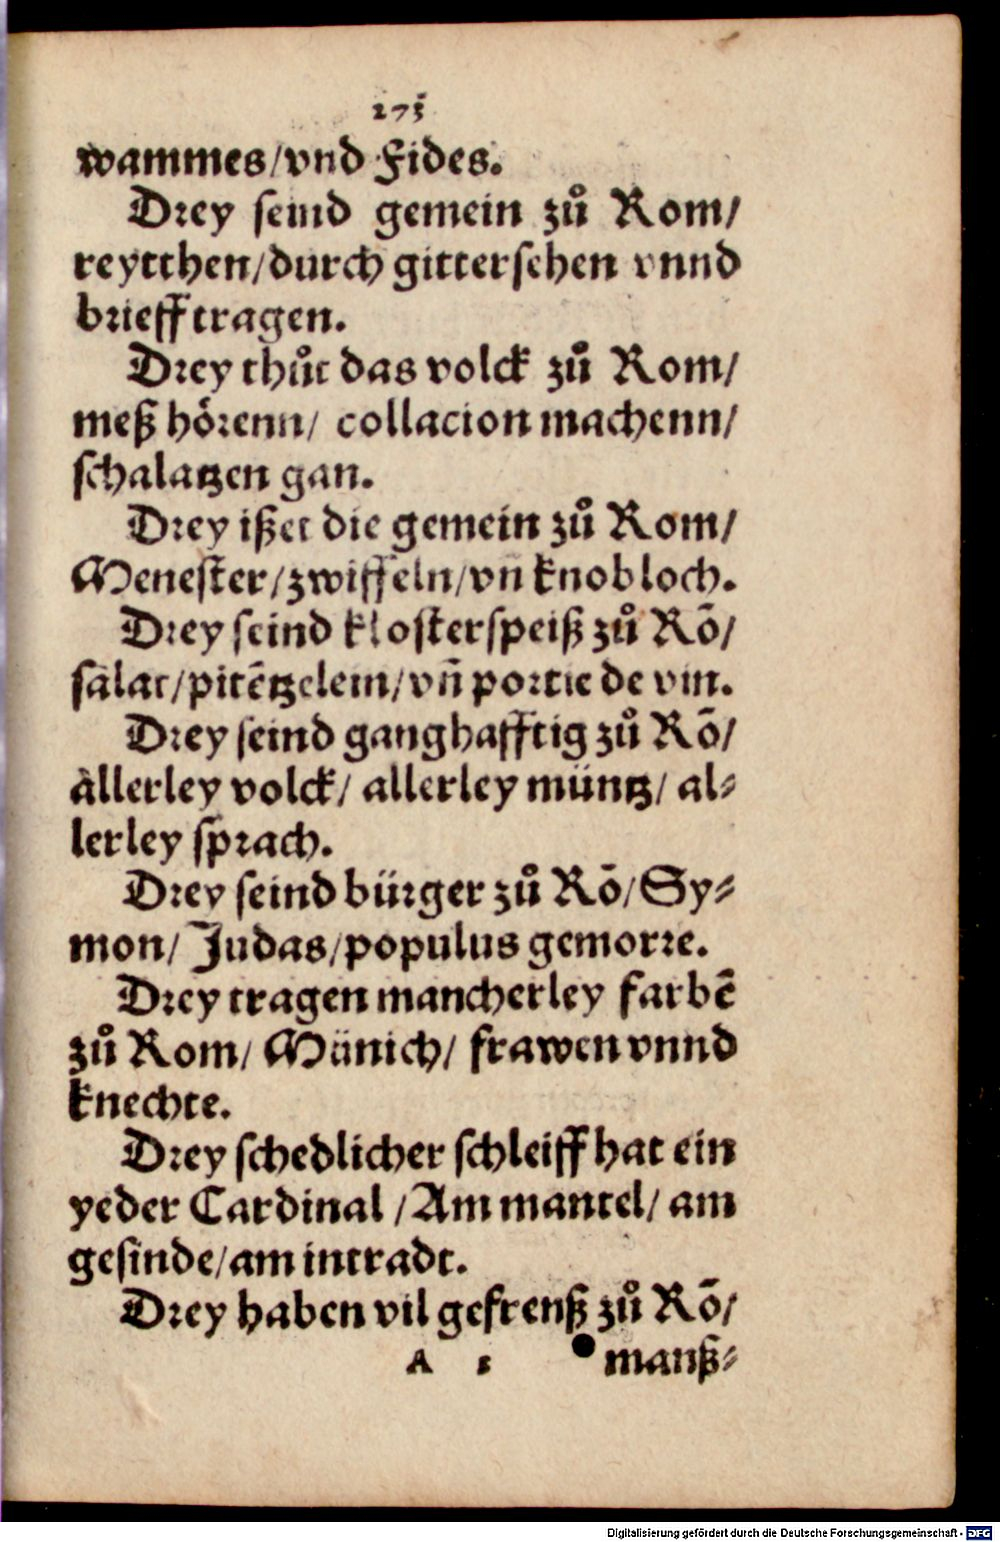 275
wammes/vnd Fides.
Drey seind gemein zů Rom/
reytthen/durch gittersehen vnnd
briefftragen.
Drey thůt das volck zů Rom/
meß hörenn/ collacion machenn/
schalatzen gan.
Drey ißet die gemein zů Rom/
Menester/zwiffeln/vñ knobloch.
Drey seind klosterspeiß zů Rō/
salat/pitētzelein/vñ portie de vin.
Drey seind ganghafftig zů Rō/
allerley volck/ allerley müntz/ al-
lerley sprach.
Drey seind bürger zů Rō/Sy-
mon/ Judas/populus gemorre.
Drey tragen mancherley farbē
zů Rom/ Münich/ frawen vnnd
knechte.
Drey schedlicher schleiff hat ein
yeder Cardinal /Am mantel/ am
gesinde/am intradt.
Drey haben vil gefrenß zů Rō/
A 5 manß-
Digitalisierung gefördert durch die Deutsche Forschungsgemeinschaft - DFG